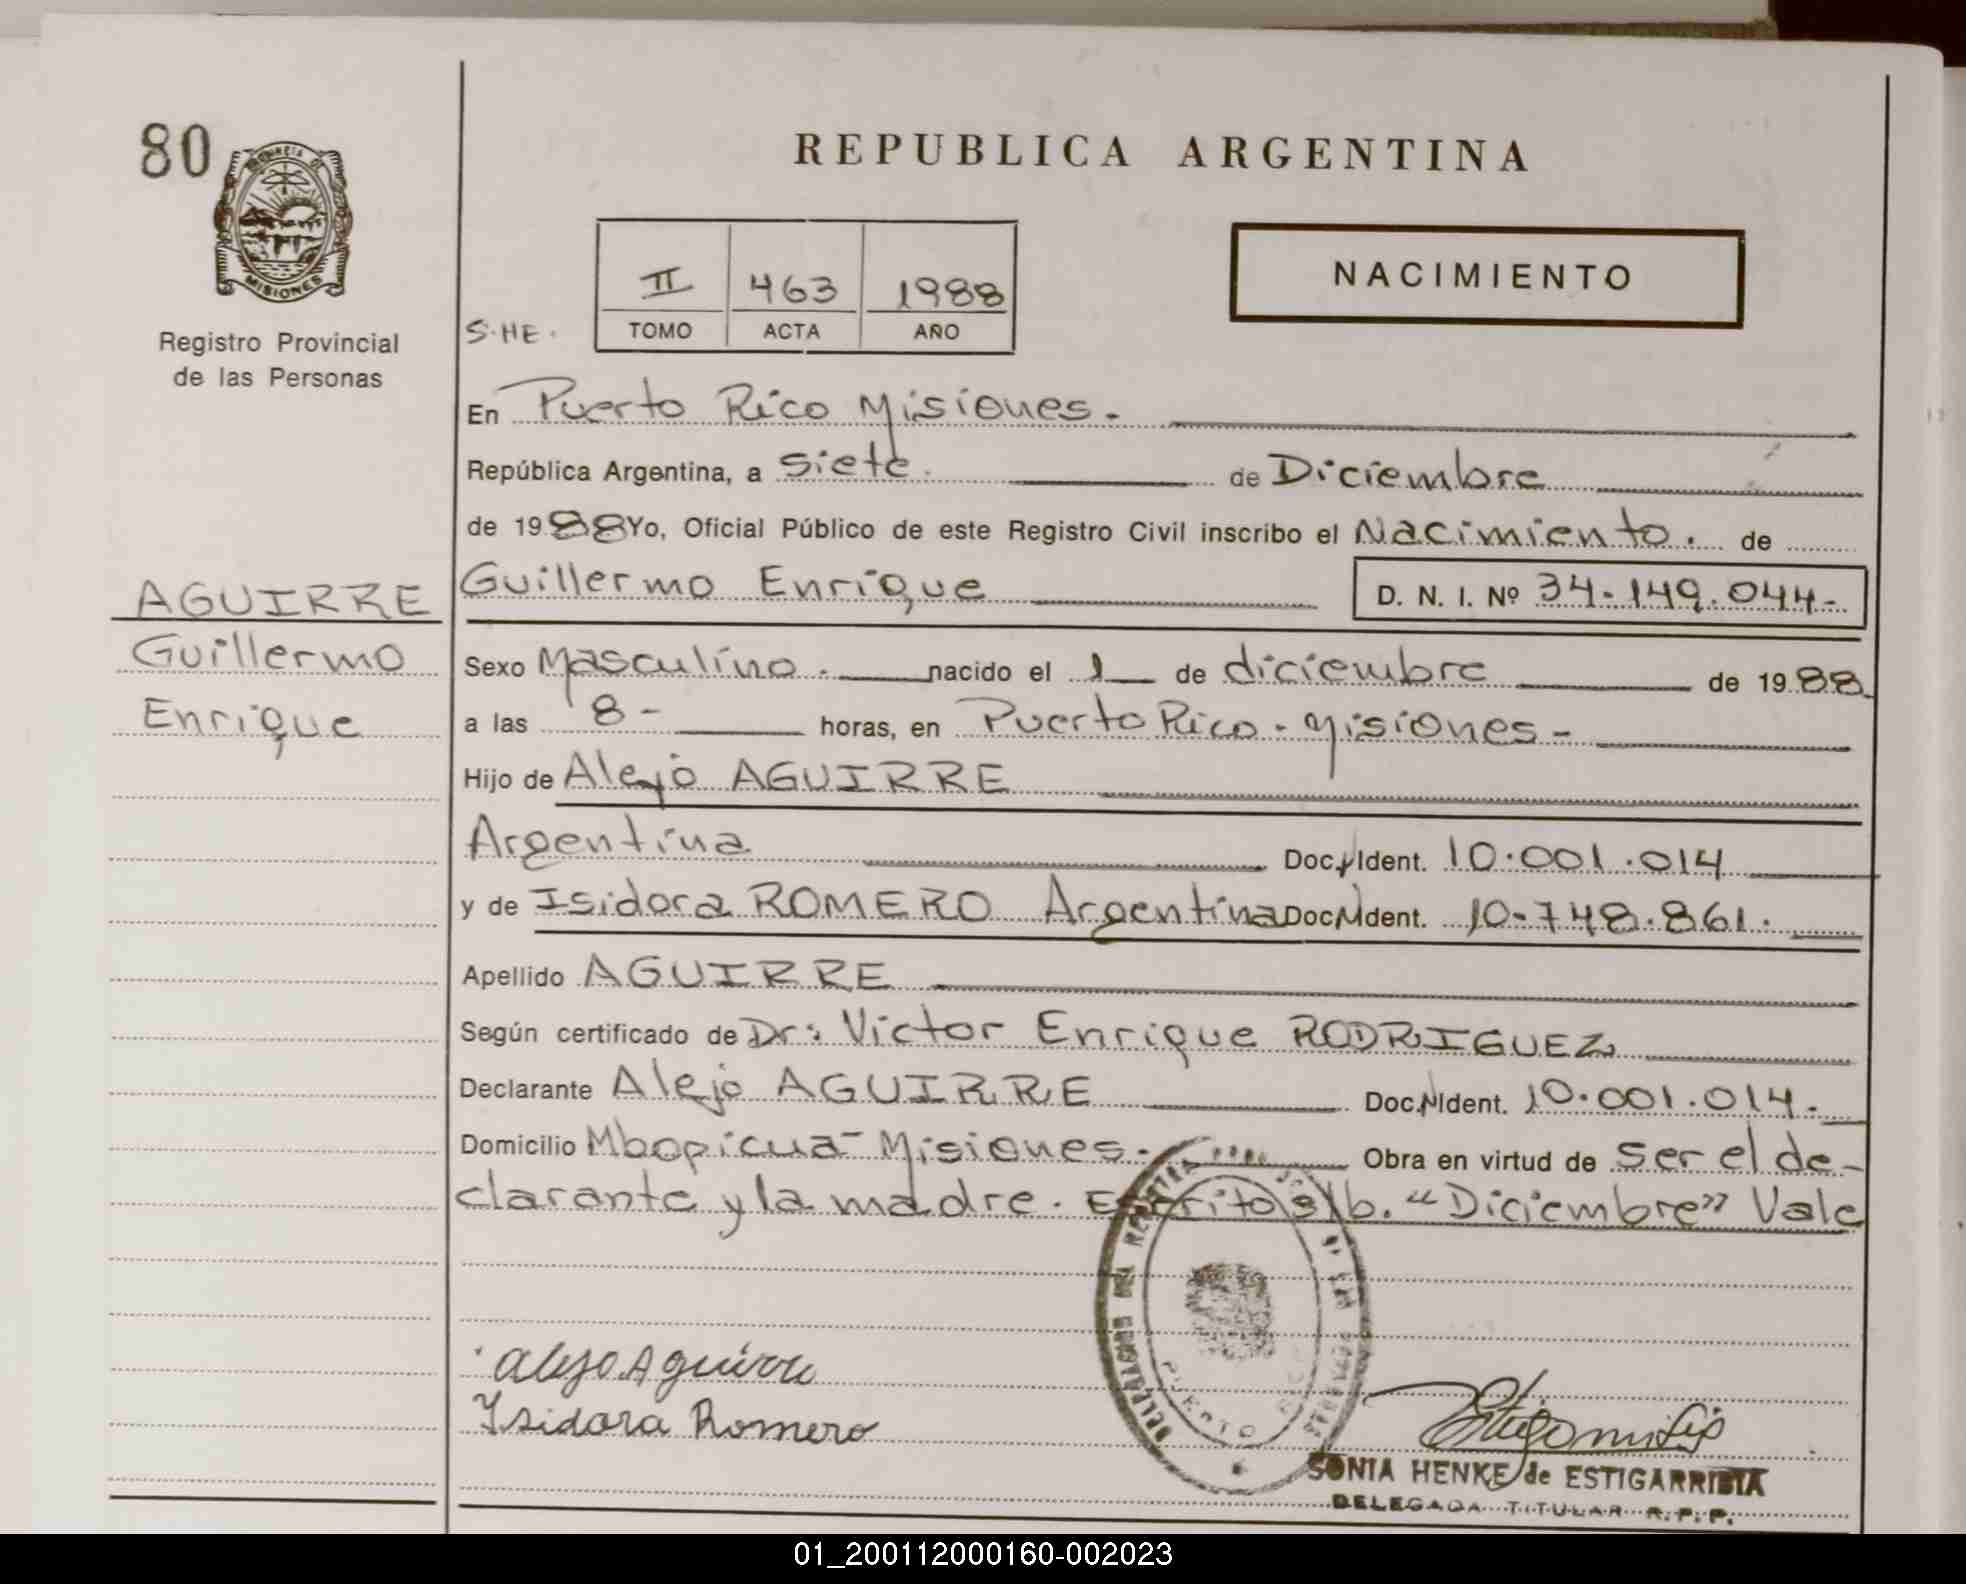 80
PROVINCIA DE
MISIONES
Registro Provincial
de las Personas
REPUBLICA ARGENTINA
II 463 1988
TOMO ACTA AÑO
NACIMIENTO
S.HE.
En Puerto Rico Misiones.
República Argentina, a siete. de Diciembre
de 1988 Yo, Oficial Público de este Registro Civil inscribo el Nacimiento. de
Guillermo Enrique D. N. I. Nº 34.149.044-
AGUIRRE
Guillermo
Enrique
Sexo Masculino. nacido el 1 de diciembre de 1988
a las 8- horas, en Puerto Rico - Misiones -
Hijo de Alejo AGUIRRE
Argentina Doc. Ident. 10.001.014
y de Isidora ROMERO Argentina Doc. Ident. 10.748.861.
Apellido AGUIRRE
Según certificado de Dr: Victor Enrique RODRIGUEZ
Declarante Alejo AGUIRRE Doc.NIdent. 10.001.014.
Domicilio Mbopicua - Misiones. Obra en virtud de ser el de-
clarante y la madre. Escrito s/b. "Diciembre" Vale
Alejo Aguirre
Isidora Romero
DELEGACION DEL REGISTRO
PUERTO RICO
SONIA HENKE de ESTIGARRIBIA
DELEGADA TITULAR R.P.P.
01_200112000160-002023